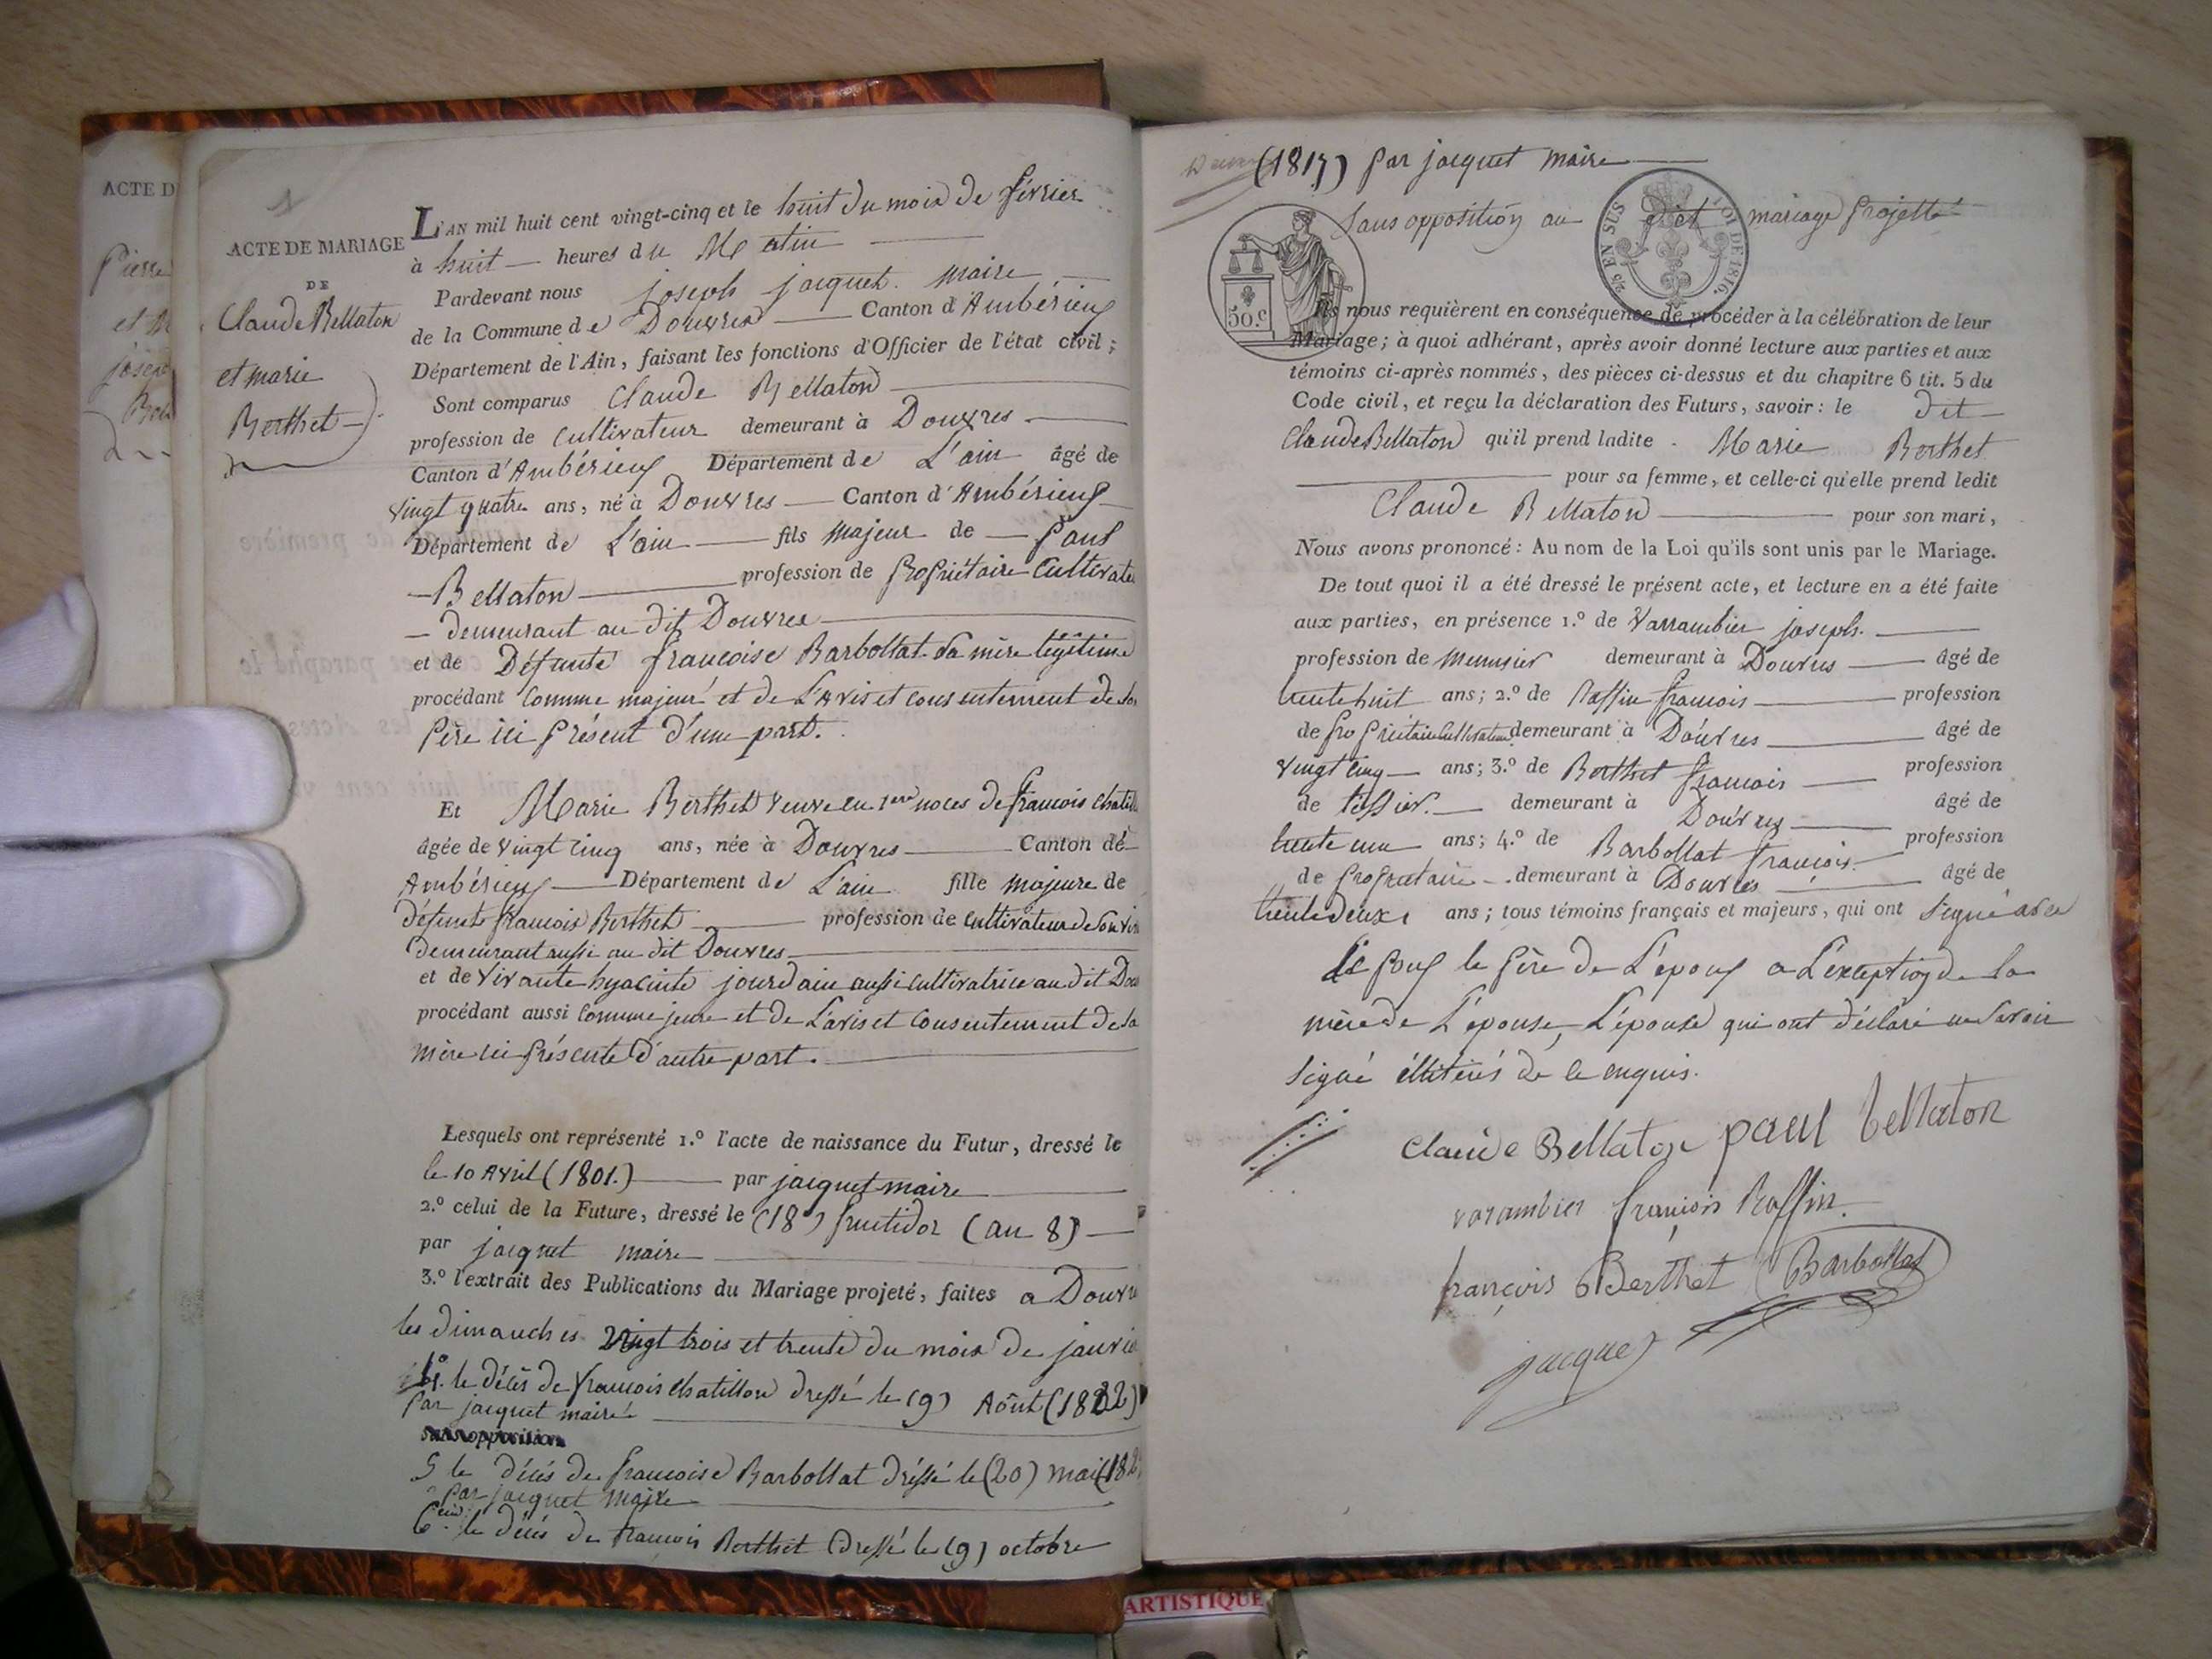 ACTE D
Pierre
et M
joseph
ACTE DE MARIAGE
DE
Claude Bellaton
et marie
Berthet
L'AN mil huit cent vingt-cinq et le huit du mois de février
à huit heures du Matin
Pardevant nous joseph jacquet maire
de la Commune de Douvres Canton d'Ambérieux
Département de l'Ain, faisant les fonctions d'Officier de l'état civil;
Sont comparus Claude Bellaton
profession de Cultivateur demeurant à Douvres
Canton d'Ambérieux Département de L'ain âgé de
vingt quatre ans, né à Douvres Canton d'Ambérieux
Département de L'ain fils majeur de Paul
Bellaton profession de propriétaire Cultivate
demeurant au dit Douvres
et de Défunte françoise Barbollat Sa mère légitime
procédant Comme majeur et de L'avis et consentement de son
Père ici présent d'une part.
Et Marie Berthet veuve en 1ere noces de françois chatill
âgée de vingt cinq ans, née à Douvres Canton dé
Ambérieux Département de L'ain fille majeure de
défunt françois Berthet profession de cultivateur de son viv
demeurant aussi au dit Douvres
et de vivante hyacinte jourdain aussi cultivatrice au dit Dou
procédant aussi Comme jeure et de L'avis et Consentement de sa
mère ici présente d'autre part.
Lesquels ont représenté 1.º l'acte de naissance du Futur, dressé le
le 10 Avril (1801.) par jacquet maire
2.º celui de la Future, dressé le (18) fructidor (an 8)
par jacquet maire
3.º l'extrait des Publications du Mariage projeté, faites a Douvr
les dimanches vingt trois et trente du mois de janvie
4º. le décès de françois chatillon dressé le (9) Août (1822)
par jacquet maire
sans opposition
5 le décès de françoise Barbollat dréssé le (20) mai (182
par jacquet maire
6eme. le décès de françois Berthet dressé le (9) octobre
(1817) par jacquet maire
Sans opposition au dit mariage projetté
50.c
25 EN SUS LOI DE 1816.
Ils nous requièrent en conséquence de procéder à la célébration de leur
Mariage; à quoi adhérant, après avoir donné lecture aux parties et aux
témoins ci-après nommés, des pièces ci-dessus et du chapitre 6 tit. 5 du
Code civil, et reçu la déclaration des Futurs, savoir: le dit
Claude Bellaton qu'il prend ladite Marie Berthet
pour sa femme, et celle-ci qu'elle prend ledit
Claude Bellaton pour son mari,
Nous avons prononcé: Au nom de la Loi qu'ils sont unis par le Mariage.
De tout quoi il a été dressé le présent acte, et lecture en a été faite
aux parties, en présence 1.º de Varrambier joseph.
profession de meunsier demeurant à Douvres âgé de
trente huit ans; 2.º de Raffin françois profession
de propriétaire Cultivateur demeurant à Douvres âgé de
vingt cinq ans; 3.º de Berthet françois profession
de tissier. demeurant à Douvres âgé de
trente un ans; 4.º de Barbollat françois. profession
de propriétaire demeurant à Douvres âgé de
trente deux ans; tous témoins français et majeurs, qui ont signé avec
L'époux le père de L'epoux a L'exception de la
mère de L'epouse, L'épouse qui ont déclaré ne savoir
signé de ce enquis.
Claude Bellaton paul bellaton
varambier françois Raffin.
françois Berthet Barbollat
jacquet
ARTISTIQUE